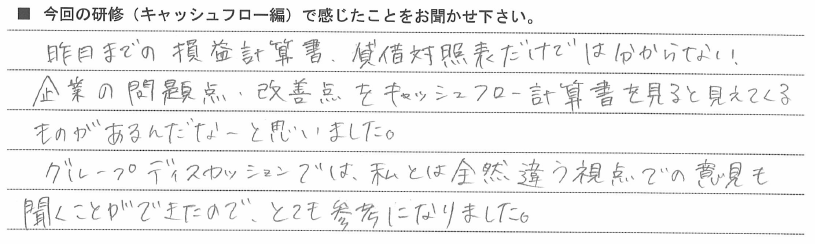 ■ 今回の研修（キャッシュフロー編）で感じたことをお聞かせ下さい。
昨日までの損益計算書、貸借対照表だけでは分からない、
企業の問題点・改善点をキャッシュフロー計算書を見ると見えてくる
ものがあるんだなーと思いました。
グループディスカッションでは、私とは全然違う視点での意見も
聞くことができたので、とても参考になりました。